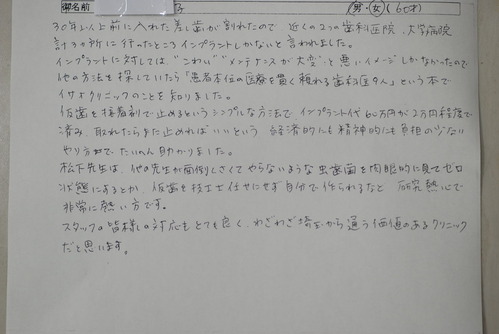 御名前 子 男・女 (60才)
30年以上前に入れた差し歯が割れたので 近くの2つの歯科医院、大学病院
計3ヶ所に行ったところインプラントしかないと言われました。
インプラントに対しては、"こわい" "メンテナンスが大変"と悪いイメージしかなかったので
他の方法を探していたら「患者本位の医療を貫く頼れる歯科医9人」という本で
イサオクリニックのことを知りました。
仮歯を接着剤で止めるというシンプルな方法で、インプラント代60万円が2万円程度で
済み、取れたらまた止めればいいという 経済的にも精神的にも負担の少ない
やり方でたいへん助かりました。
松下先生は、他の先生が面倒くさくてやらないような虫歯菌を肉眼的に見てゼロ
状態にするとか、仮歯を技工士任せにせず自分で作られるなど 研究熱心で
非常に熱い方です。
スタッフの皆様の対応もとても良く、わざわざ埼玉から通う価値のあるクリニック
だと思います。